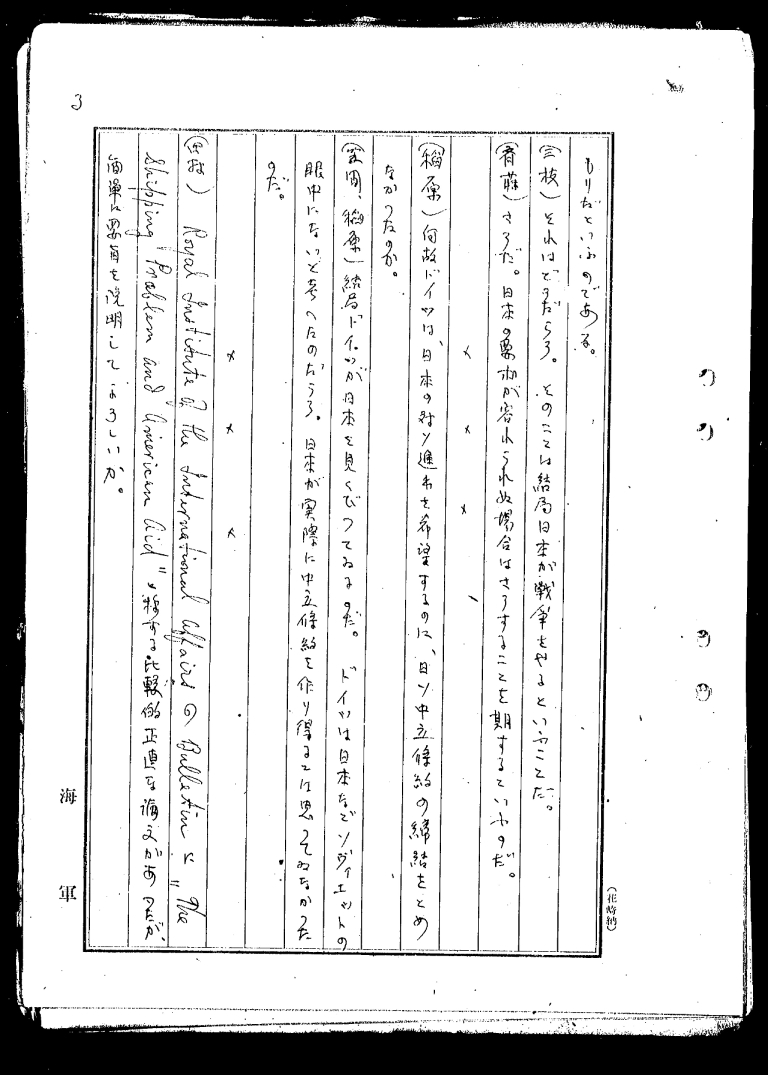 3
もりだといふのである。
(三枝) それはどうだらう。そのことは結局日本が戦争をやるといふことだ。
(斉藤) さうだ。日本の要求が容れられぬ場合はさうすることを期するといふのだ。
× × ×
(稲原) 何故ドイツは、日本の対ソ進出を希望するのに、日ソ中立條約の締結をとめ
なかつたのか。
(稲原) 結局ドイツが日本を見くびつてゐるのだ。ドイツは日本などソヴィエットの
眼中にないと考へたのだらう。日本が実際に中立條約を作り得るとは思つてゐなかつた
のだ。
× × ×
(三枝) Royal Institute of the International Affairs の Bulletin に "The
Shipping Problem and American Aid" と称する比較的正直な論文があつたが、
簡単に要旨を説明してよろしいか。
海軍
(花崎納)